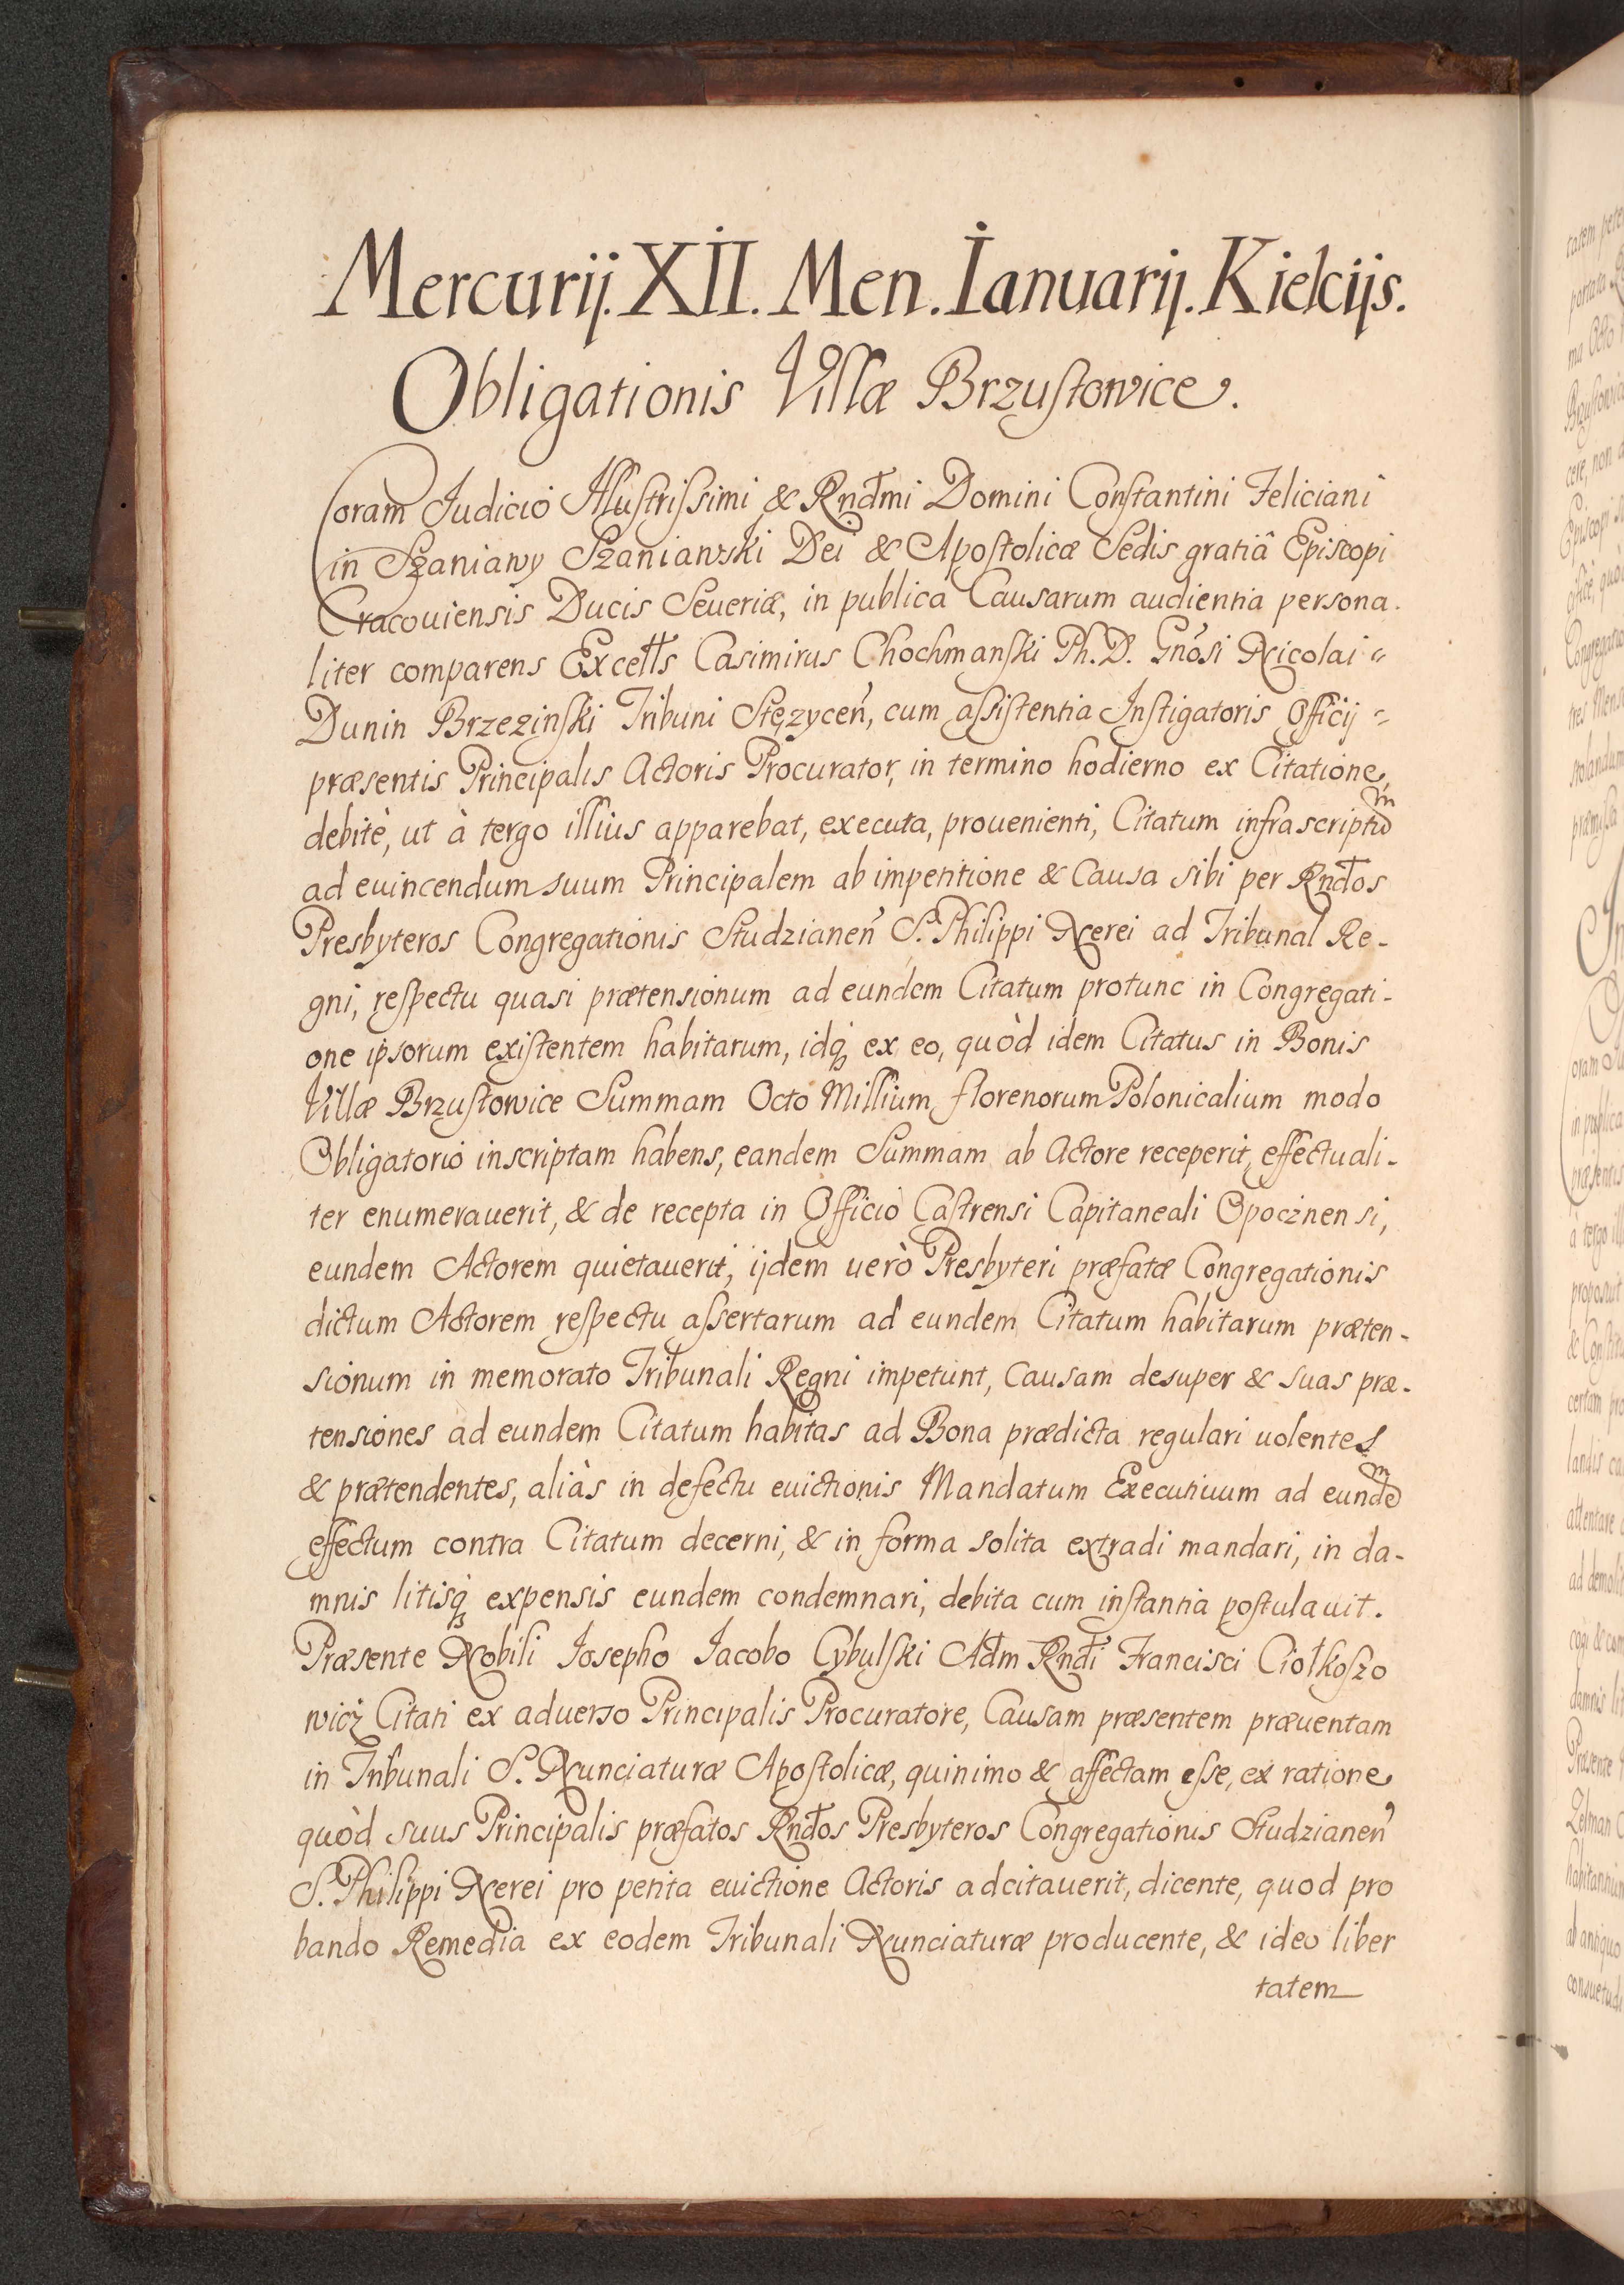 Mercurij. XII. Men. Ianuarij. Kielcijs.
Obligationis Villæ Brzustowice.
Coram Judicio Illustrissimi & Rndmi Domini Constantini Feliciani
in Szaniawy Szaniawski Dei & Apostolicæ Sedis gratiâ Episcopi
Cracouiensis Ducis Seueriæ, in publica Causarum audientia persona-
liter comparens Excells Casimirus Chochmanski Ph. D. Gnosi Nicolai
Dunin Brzezinski Tribuni Stęzycen, cum assistentia Instigatoris Officij
præsentis Principalis Actoris Procurator, in termino hodierno ex Citatione,
debitè, ut à tergo illius apparebat, executa, prouenienti, Citatum infrascriptum
ad euincendum suum Principalem ab impetitione & Causa sibi per Rndos
Presbyteros Congregationis Studzianen S. Philippi Nerei ad Tribunal Re-
gni, respectu quasi prætensionum ad eundem Citatum protunc in Congregati-
one ipsorum existentem habitarum, idq ex eo, quòd idem Citatus in Bonis
Villæ Brzustowice Summam Octo Millium florenorum Polonicalium modo
Obligatorio inscriptam habens, eandem Summam ab Actore receperit, effectuali-
ter enumerauerit, & de recepta in Officio Castrensi Capitaneali Opocznensi,
eundem Actorem quietauerit, ijdem uerò Presbyteri præfatæ Congregationis
dictum Actorem respectu assertarum ad eundem Citatum habitarum præten-
sionum in memorato Tribunali Regni impetunt, Causam desuper & suas præ-
tensiones ad eundem Citatum habitas ad Bona prædicta regulari uolentes
& prætendentes, aliàs in defectu euictionis Mandatum Executiuum ad eundem
effectum contra Citatum decerni, & in forma solita extradi mandari, in da-
mnis litisq expensis eundem condemnari, debita cum instantia postulauit.
Præsente Nobili Iosepho Jacobo Cybulski Adm Rndi Francisci Ciołkoszo
wicz Citati ex aduerso Principalis Procuratore, Causam præsentem præuentam
in Tribunali S. Nunciaturæ Apostolicæ, quinimo & affectam esse, ex ratione
quòd suus Principalis præfatos Rndos Presbyteros Congregationis Studzianen
S. Philippi Nerei pro petita euictione Actoris adcitauerit, dicente, quod pro
bando Remedia ex eodem Tribunali Nunciaturæ producente, & ideo liber
tatem